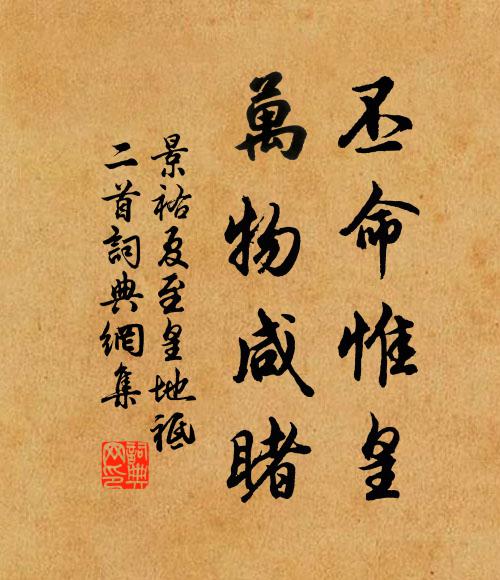 丕命惟皇
萬物咸睹
景祐夏至皇地祇
二首詞典網集
詞典
网印